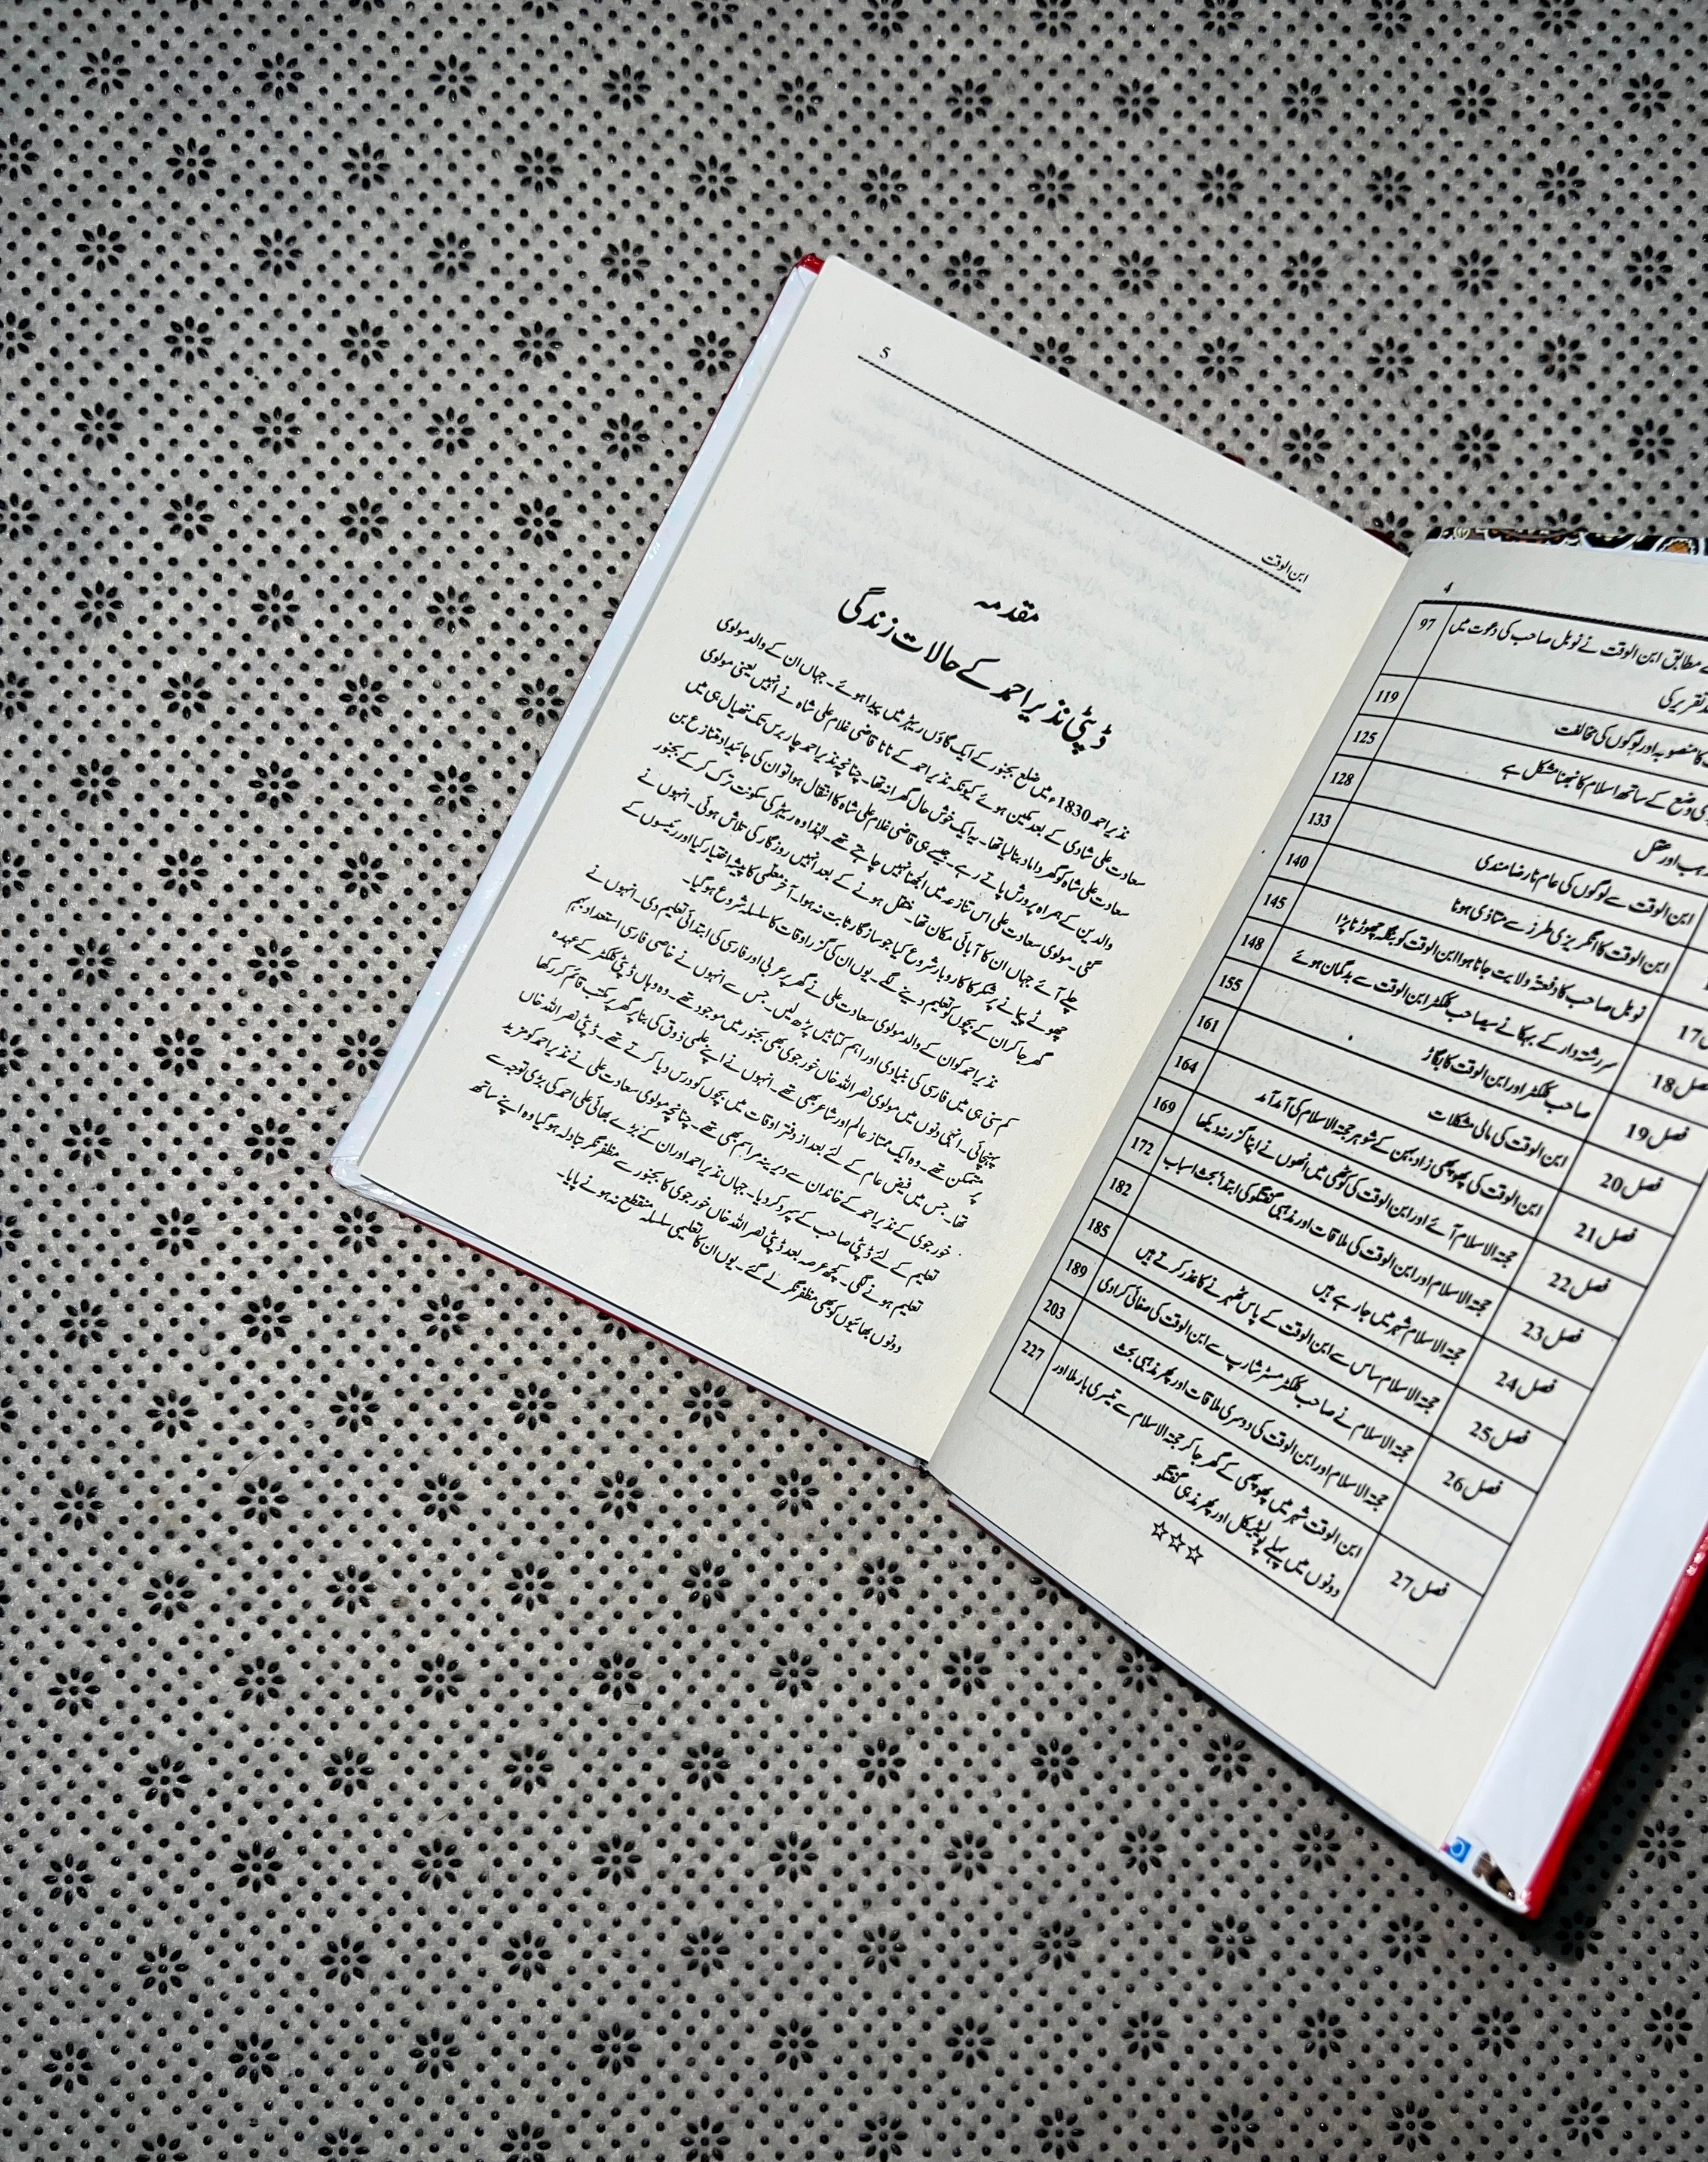 4
مطابق ابن الوقت نے نوبل صاحب کی دعوت میں 97
تقریر کی
کا منصوبہ اور لوگوں کی مخالفت 119
وضع کے ساتھ اسلام کا نبھنا مشکل ہے 125
اور عقل 128
ابن الوقت سے لوگوں کی عام نارضامندی 133
ابن الوقت کا انگریزی طرز سے متاذی ہونا 140
17 نوبل صاحب کا دفعتہً ولایت جانا ہوا ابن الوقت کو بنگلہ چھوڑنا پڑا 145
فصل 18 سررشتہ دار کے بہکانے سے صاحب کلکٹر ابن الوقت سے بدگمان ہوئے 148
فصل 19 صاحب کلکٹر اور ابن الوقت کا بگاڑ 155
فصل 20 ابن الوقت کی مالی مشکلات 161
فصل 21 ابن الوقت کی پھوپھی زاد بہن کے شوہر حجۃ الاسلام کی آمد آمد 164
فصل 22 حجۃ الاسلام آئے اور ابن الوقت کی کوٹھی میں انھوں نے اپنا گزر نہ دیکھا 169
فصل 23 حجۃ الاسلام اور ابن الوقت کی ملاقات اور مذہبی گفتگو کی ابتدا بحث اسباب 172
فصل 24 حجۃ الاسلام شہر میں جا رہے ہیں 182
فصل 25 حجۃ الاسلام ساس سے ابن الوقت کے پاس ٹھہرنے کا عذر کرتے ہیں 185
فصل 26 حجۃ الاسلام نے صاحب کلکٹر مسٹر شارپ سے ابن الوقت کی صفائی کرا دی 189
حجۃ الاسلام اور ابن الوقت کی دوسری ملاقات اور پھر مذہبی بحث 203
فصل 27 ابن الوقت شہر میں پھوپھی کے گھر جا کر حجۃ الاسلام سے تیسری بار ملا اور 227
دونوں میں پہلے پولیٹیکل اور پھر مذہبی گفتگو
☆☆☆
ابن الوقت 5
مقدمہ
ڈپٹی نذیر احمد کے حالات زندگی
نذیر احمد 1830ء میں ضلع بجنور کے ایک گاؤں ریہڑ میں پیدا ہوئے۔ جہاں ان کے والد مولوی
سعادت علی شادی کے بعد مکین ہوئے کیونکہ نذیر احمد کے نانا قاضی غلام علی شاہ نے انہیں یعنی مولوی
سعادت علی شاہ کو گھر داماد بنا لیا تھا۔ یہ ایک خوش حال گھرانہ تھا۔ چنانچہ نذیر احمد چار برس تک ننھیال ہی میں
والدین کے ہمراہ پرورش پاتے رہے۔ جیسے ہی قاضی غلام علی شاہ کا انتقال ہوا تو ان کی جائیداد متنازع بن
گئی۔ مولوی سعادت علی اس تنازعہ میں الجھنا نہیں چاہتے تھے۔ لہٰذا وہ ریہڑ کی سکونت ترک کر کے بجنور
چلے آئے جہاں ان کا آبائی مکان تھا۔ منتقل ہونے کے بعد انہیں روزگار کی تلاش ہوئی۔ انہوں نے
چھوٹے پیمانے پر شکر کا کاروبار شروع کیا جو سازگار ثابت نہ ہوا۔ آخر معلمی کا پیشہ اختیار کیا اور رئیسوں کے
گھر جا کر ان کے بچوں کو تعلیم دینے لگے۔ یوں ان کی گزر اوقات کا سلسلہ شروع ہو گیا۔
نذیر احمد کو ان کے والد مولوی سعادت علی نے گھر پر عربی اور فارسی کی ابتدائی تعلیم دی۔ انہوں نے
کم سنی ہی میں فارسی کی بنیادی اور اہم کتابیں پڑھ لیں۔ جس سے انہوں نے خاصی فارسی استعداد بہم
پہنچائی۔ انہی دنوں میں مولوی نصر اللہ خاں خورجوی بھی بجنور میں موجود تھے۔ وہ وہاں ڈپٹی کلکٹر کے عہدہ
پر متمکن تھے۔ وہ ایک ممتاز عالم اور شاعر بھی تھے۔ انہوں نے اپنے علمی ذوق کی بنا پر گھر پر مکتب قائم کر رکھا
تھا۔ جس میں فیض عام کے لئے بعد از دفتر اوقات میں بچوں کو درس دیا کرتے تھے۔ ڈپٹی نصر اللہ خاں
خورجوی کے نذیر احمد کے خاندان سے دیرینہ مراسم بھی تھے۔ چنانچہ مولوی سعادت علی نے نذیر احمد کو مزید
تعلیم کے لئے ڈپٹی صاحب کے سپرد کر دیا۔ جہاں نذیر احمد اور ان کے بڑے بھائی علی احمد کی بڑی توجہ سے
تعلیم ہونے لگی۔ کچھ عرصہ بعد ڈپٹی نصر اللہ خاں خورجوی کا بجنور سے مظفر نگر تبادلہ ہو گیا وہ اپنے ساتھ
دونوں بھائیوں کو بھی مظفر نگر لے گئے۔ یوں ان کا تعلیمی سلسلہ منقطع نہ ہونے پایا۔